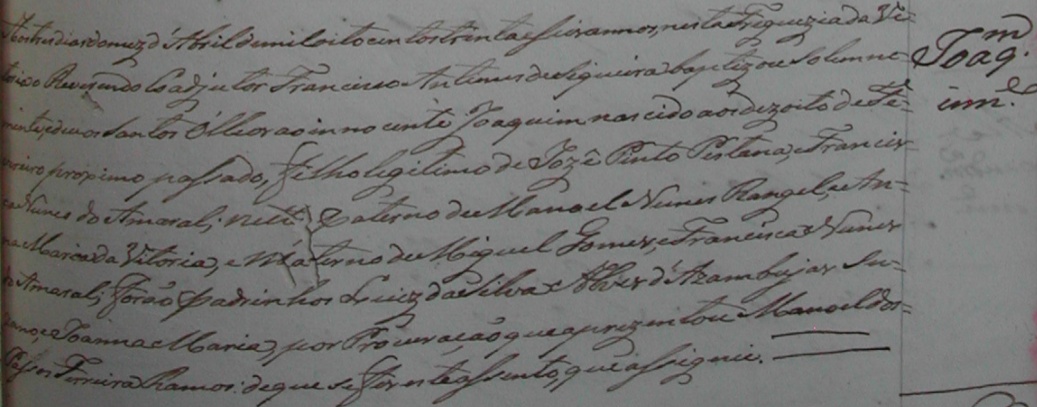 Aos tres dias do mez d'Abril de mil oito centos trinta e seis annos, nesta Freguezia da Vi=
o Reverendo Coadjutor Francisco Antunes de Siqueira baptizou solemne=
mente, e deu os Santos Olleos ao innocente Joaquim nascido aos dezoito de Fe=
vereiro proximo passado, filho legitimo de Jozé Pinto Pestana, e Francis=
ca Nunes do Amaral; neto Paterno de Manoel Nunes Rangel, e An=
na Maria da Vitoria, e Materno de Miguel Gomes, e Francisca Nunes
do Amaral; forão Padrinhos Luiz da Silva Alves d'Azambuja Su=
zano, e Joanna Maria, por Procuração que aprezentou Manoel dos=
Passos Ferreira Ramos: de que se fez este assento, que assignei.
Joaq.m
inn.e